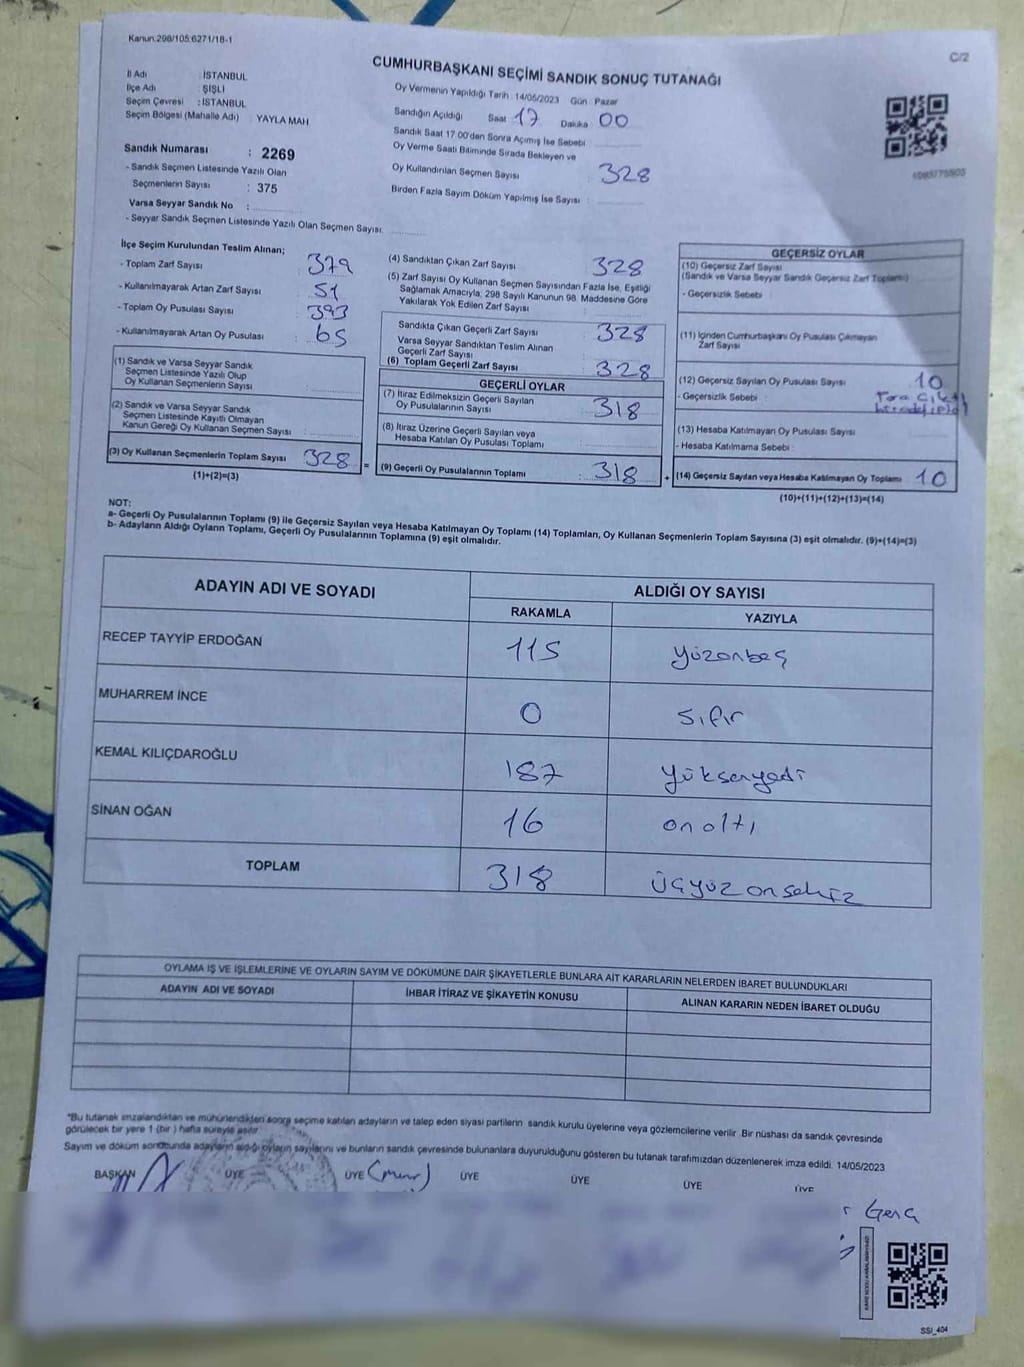 Kanun:298/105:6271/18-1
C/2
CUMHURBAŞKANI SEÇİMİ SANDIK SONUÇ TUTANAĞI
İl Adı : İSTANBUL
İlçe Adı : ŞİŞLİ
Seçim Çevresi : İSTANBUL
Seçim Bölgesi (Mahalle Adı) YAYLA MAH
Sandık Numarası : 2269
- Sandık Seçmen Listesinde Yazılı Olan
Seçmenlerin Sayısı : 375
Varsa Seyyar Sandık No :
- Seyyar Sandık Seçmen Listesinde Yazılı Olan Seçmen Sayısı:
Oy Vermenin Yapıldığı Tarih : 14/05/2023 Gün : Pazar
Sandığın Açıldığı Saat 17 Dakika 00
Sandık Saat 17.00'den Sonra Açılmış İse Sebebi :
Oy Verme Saati Bitiminde Sırada Bekleyen ve
Oy Kullandırılan Seçmen Sayısı : 328
Birden Fazla Sayım Döküm Yapılmış İse Sayısı :
İlçe Seçim Kurulundan Teslim Alınan;
- Toplam Zarf Sayısı : 379
- Kullanılmayarak Artan Zarf Sayısı : 51
- Toplam Oy Pusulası Sayısı : 393
- Kullanılmayarak Artan Oy Pusulası : 65
(1) Sandık ve Varsa Seyyar Sandık
Seçmen Listesinde Yazılı Olup
Oy Kullanan Seçmenlerin Sayısı :
(2) Sandık ve Varsa Seyyar Sandık
Seçmen Listesinde Kayıtlı Olmayan
Kanun Gereği Oy Kullanan Seçmen Sayısı :
(3) Oy Kullanan Seçmenlerin Toplam Sayısı : 328
(1)+(2)=(3)
=
(4) Sandıktan Çıkan Zarf Sayısı : 328
(5) Zarf Sayısı Oy Kullanan Seçmen Sayısından Fazla İse, Eşitliği
Sağlamak Amacıyla, 298 Sayılı Kanunun 98. Maddesine Göre
Yakılarak Yok Edilen Zarf Sayısı :
Sandıkta Çıkan Geçerli Zarf Sayısı : 328
Varsa Seyyar Sandıktan Teslim Alınan
Geçerli Zarf Sayısı :
(6) Toplam Geçerli Zarf Sayısı : 328
GEÇERLİ OYLAR
(7) İtiraz Edilmeksizin Geçerli Sayılan
Oy Pusulalarının Sayısı : 318
(8) İtiraz Üzerine Geçerli Sayılan veya
Hesaba Katılan Oy Pusulası Toplamı :
(9) Geçerli Oy Pusulalarının Toplamı : 318
+
GEÇERSİZ OYLAR
(10) Geçersiz Zarf Sayısı
(Sandık ve Varsa Seyyar Sandık Geçersiz Zarf Toplamı)
- Geçersizlik Sebebi :
(11) İçinden Cumhurbaşkanı Oy Pusulası Çıkmayan
Zarf Sayısı
(12) Geçersiz Sayılan Oy Pusulası Sayısı : 10
- Geçersizlik Sebebi :
(13) Hesaba Katılmayan Oy Pusulası Sayısı :
- Hesaba Katılmama Sebebi :
(14) Geçersiz Sayılan veya Hesaba Katılmayan Oy Toplamı : 10
(10)+(11)+(12)+(13)=(14)
NOT:
a- Geçerli Oy Pusulalarının Toplamı (9) ile Geçersiz Sayılan veya Hesaba Katılmayan Oy Toplamı (14) Toplamları, Oy Kullanan Seçmenlerin Toplam Sayısına (3) eşit olmalıdır. (9)+(14)=(3)
b- Adayların Aldığı Oyların Toplamı, Geçerli Oy Pusulalarının Toplamına (9) eşit olmalıdır.
ADAYIN ADI VE SOYADI
ALDIĞI OY SAYISI
RAKAMLA YAZIYLA
RECEP TAYYİP ERDOĞAN 115 yüzonbeş
MUHARREM İNCE 0 sıfır
KEMAL KILIÇDAROĞLU 187 yükseryedi
SİNAN OĞAN 16 onaltı
TOPLAM 318 üçyüzonsekiz
OYLAMA İŞ VE İŞLEMLERİNE VE OYLARIN SAYIM VE DÖKÜMÜNE DAİR ŞİKAYETLERLE BUNLARA AİT KARARLARIN NELERDEN İBARET BULUNDUKLARI
ADAYIN ADI VE SOYADI İHBAR İTİRAZ VE ŞİKAYETİN KONUSU ALINAN KARARIN NEDEN İBARET OLDUĞU
*Bu tutanak imzalandıktan ve mühürlendikten sonra seçime katılan adayların ve talep eden siyasi partilerin sandık kurulu üyelerine veya gözlemcilerine verilir. Bir nüshası da sandık çevresinde
görülecek bir yere 1 (bir) hafta süreyle asılır.
Sayım ve döküm sonucunda adayların aldığı oyların sayılarını ve bunların sandık çevresinde bulunanlara duyurulduğunu gösteren bu tutanak tarafımızdan düzenlenerek imza edildi. 14/05/2023
BAŞKAN ÜYE ÜYE ÜYE ÜYE ÜYE ÜYE
Genç
SSI_404